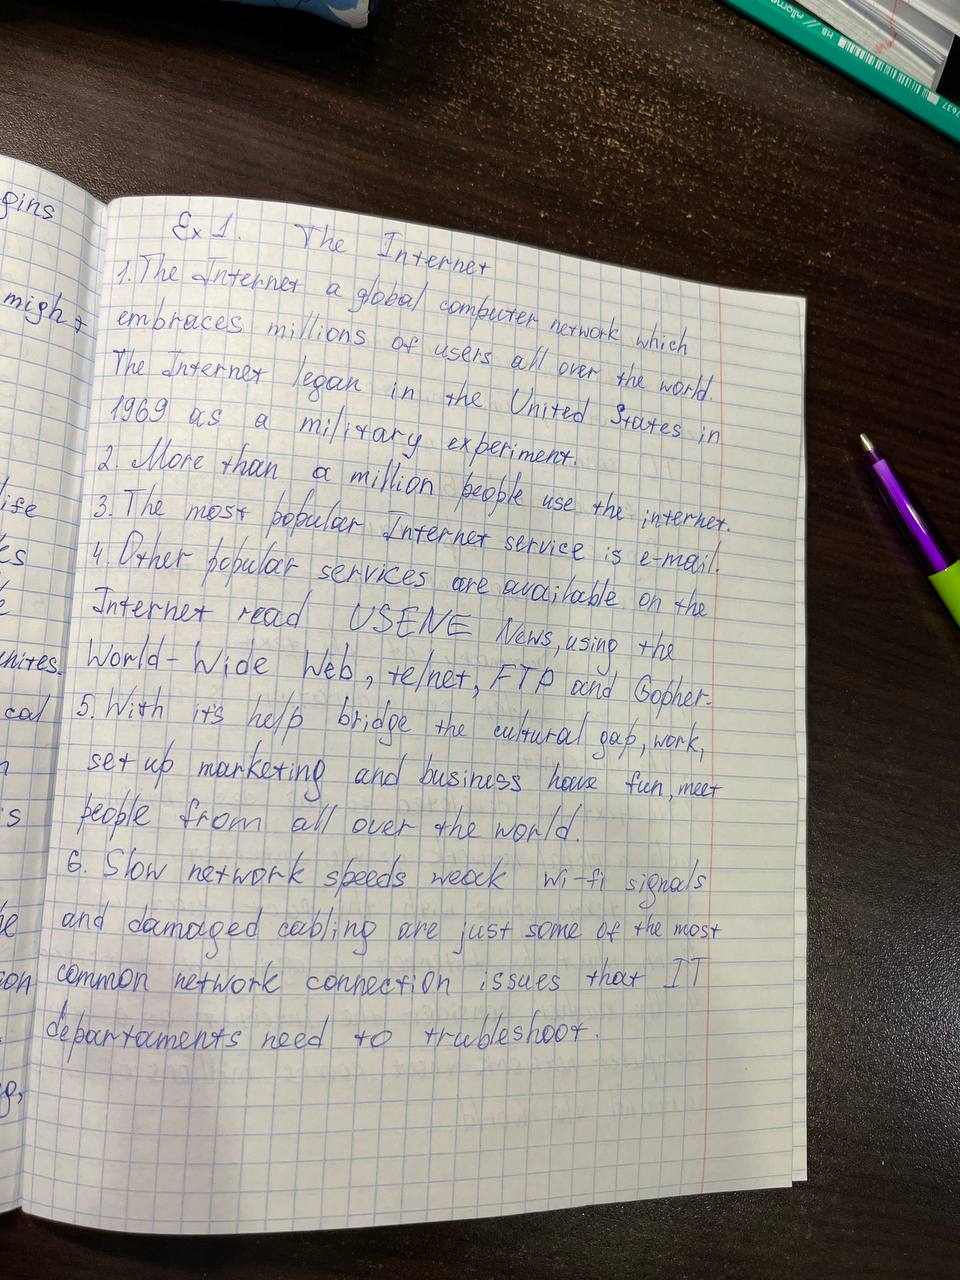 Ex 1. The Internet
1. The Internet a global computer network which
embraces millions of users all over the world.
The Internet legan in the United States in
1969 as a military experiment.
2. More than a million people use the internet.
3. The most popular Internet service is e-mail.
4. Other popular services are available on the
Internet read USENE News, using the
World-Wide Web, telnet, FTP and Gopher.
5. With its help bridge the cultural gap, work,
set up marketing and business have fun, meet
people from all over the world.
6. Slow network speeds weack wi-fi signals
and damaged cabling are just some of the most
common network connection issues that IT
departaments need to trubleshoot.
gins
might
life
cal
HB